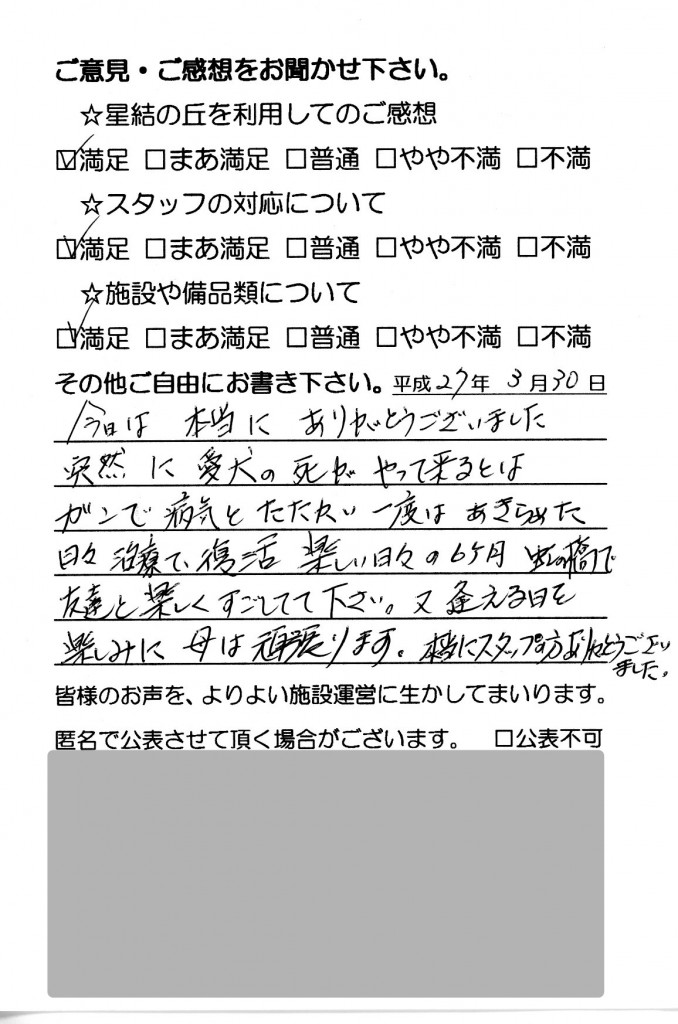 ご意見・ご感想をお聞かせ下さい。
☆星結の丘を利用してのご感想
☑満足 □まあ満足 □普通 □やや不満 □不満
☆スタッフの対応について
☑満足 □まあ満足 □普通 □やや不満 □不満
☆施設や備品類について
☑満足 □まあ満足 □普通 □やや不満 □不満
その他ご自由にお書き下さい。平成27年 3月30日
今日は 本当に ありがとうございました
突然 に 愛犬の 死が やって来るとは
ガンで 病気と たたかい 一度は あきらめた
日々 治療で、復活 楽しい日々の 6ケ月 虹の橋で
友達と 楽しく すごしてて下さい。又 逢える日を
楽しみに 母は 頑張ります。本当にスタッフの方ありがとうござい
ました。
皆様のお声を、よりよい施設運営に生かしてまいります。
匿名で公表させて頂く場合がございます。 □公表不可